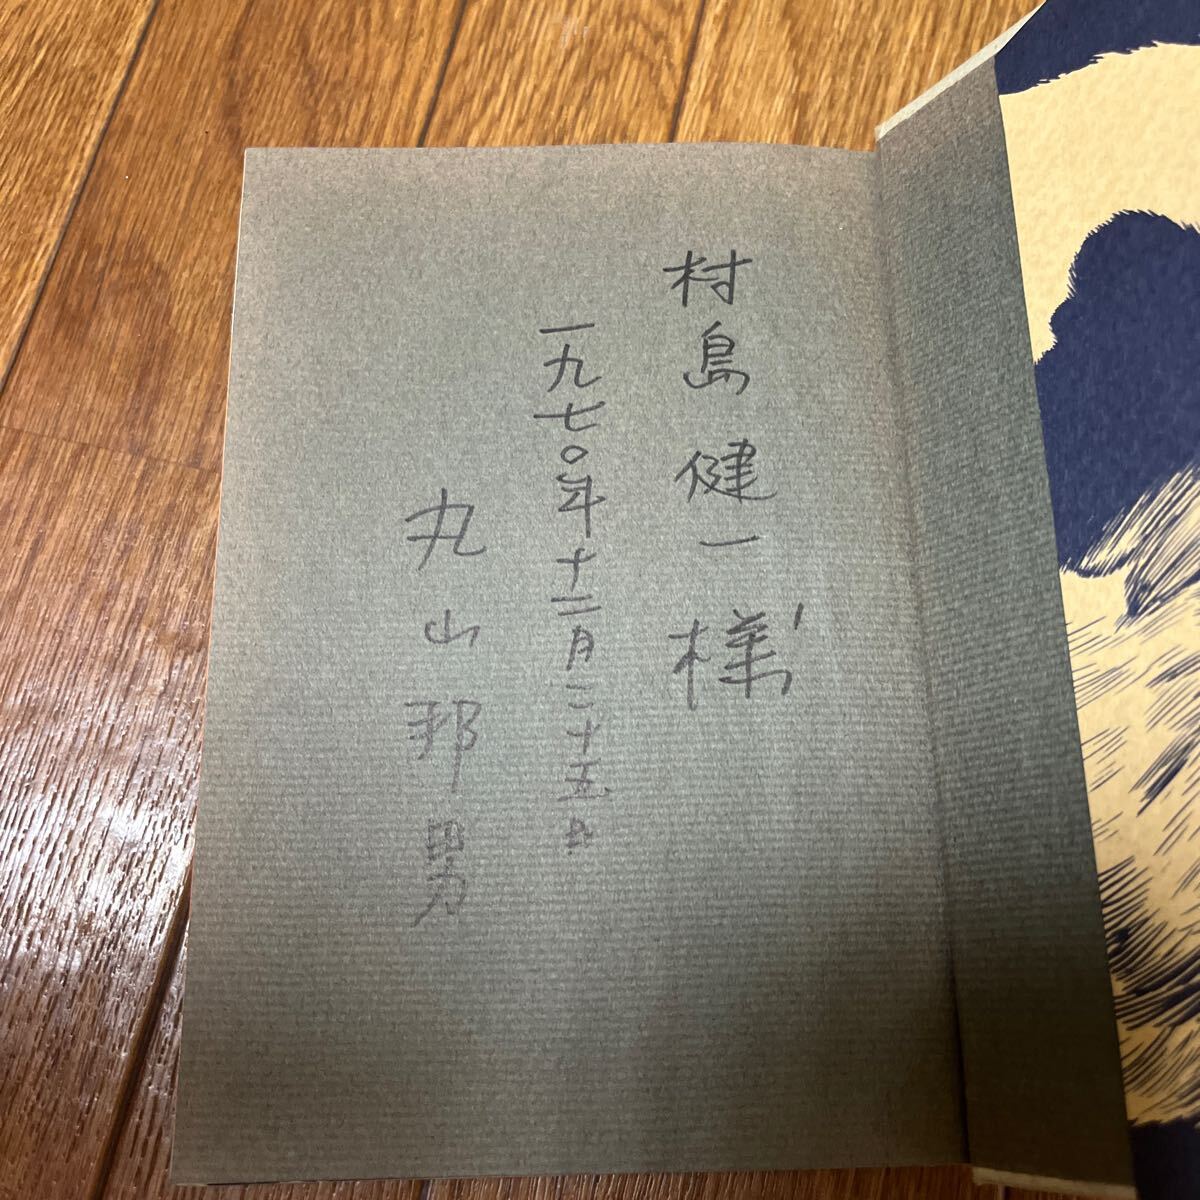 村島健一様
一九七〇年十二月二十五日
丸山邦男